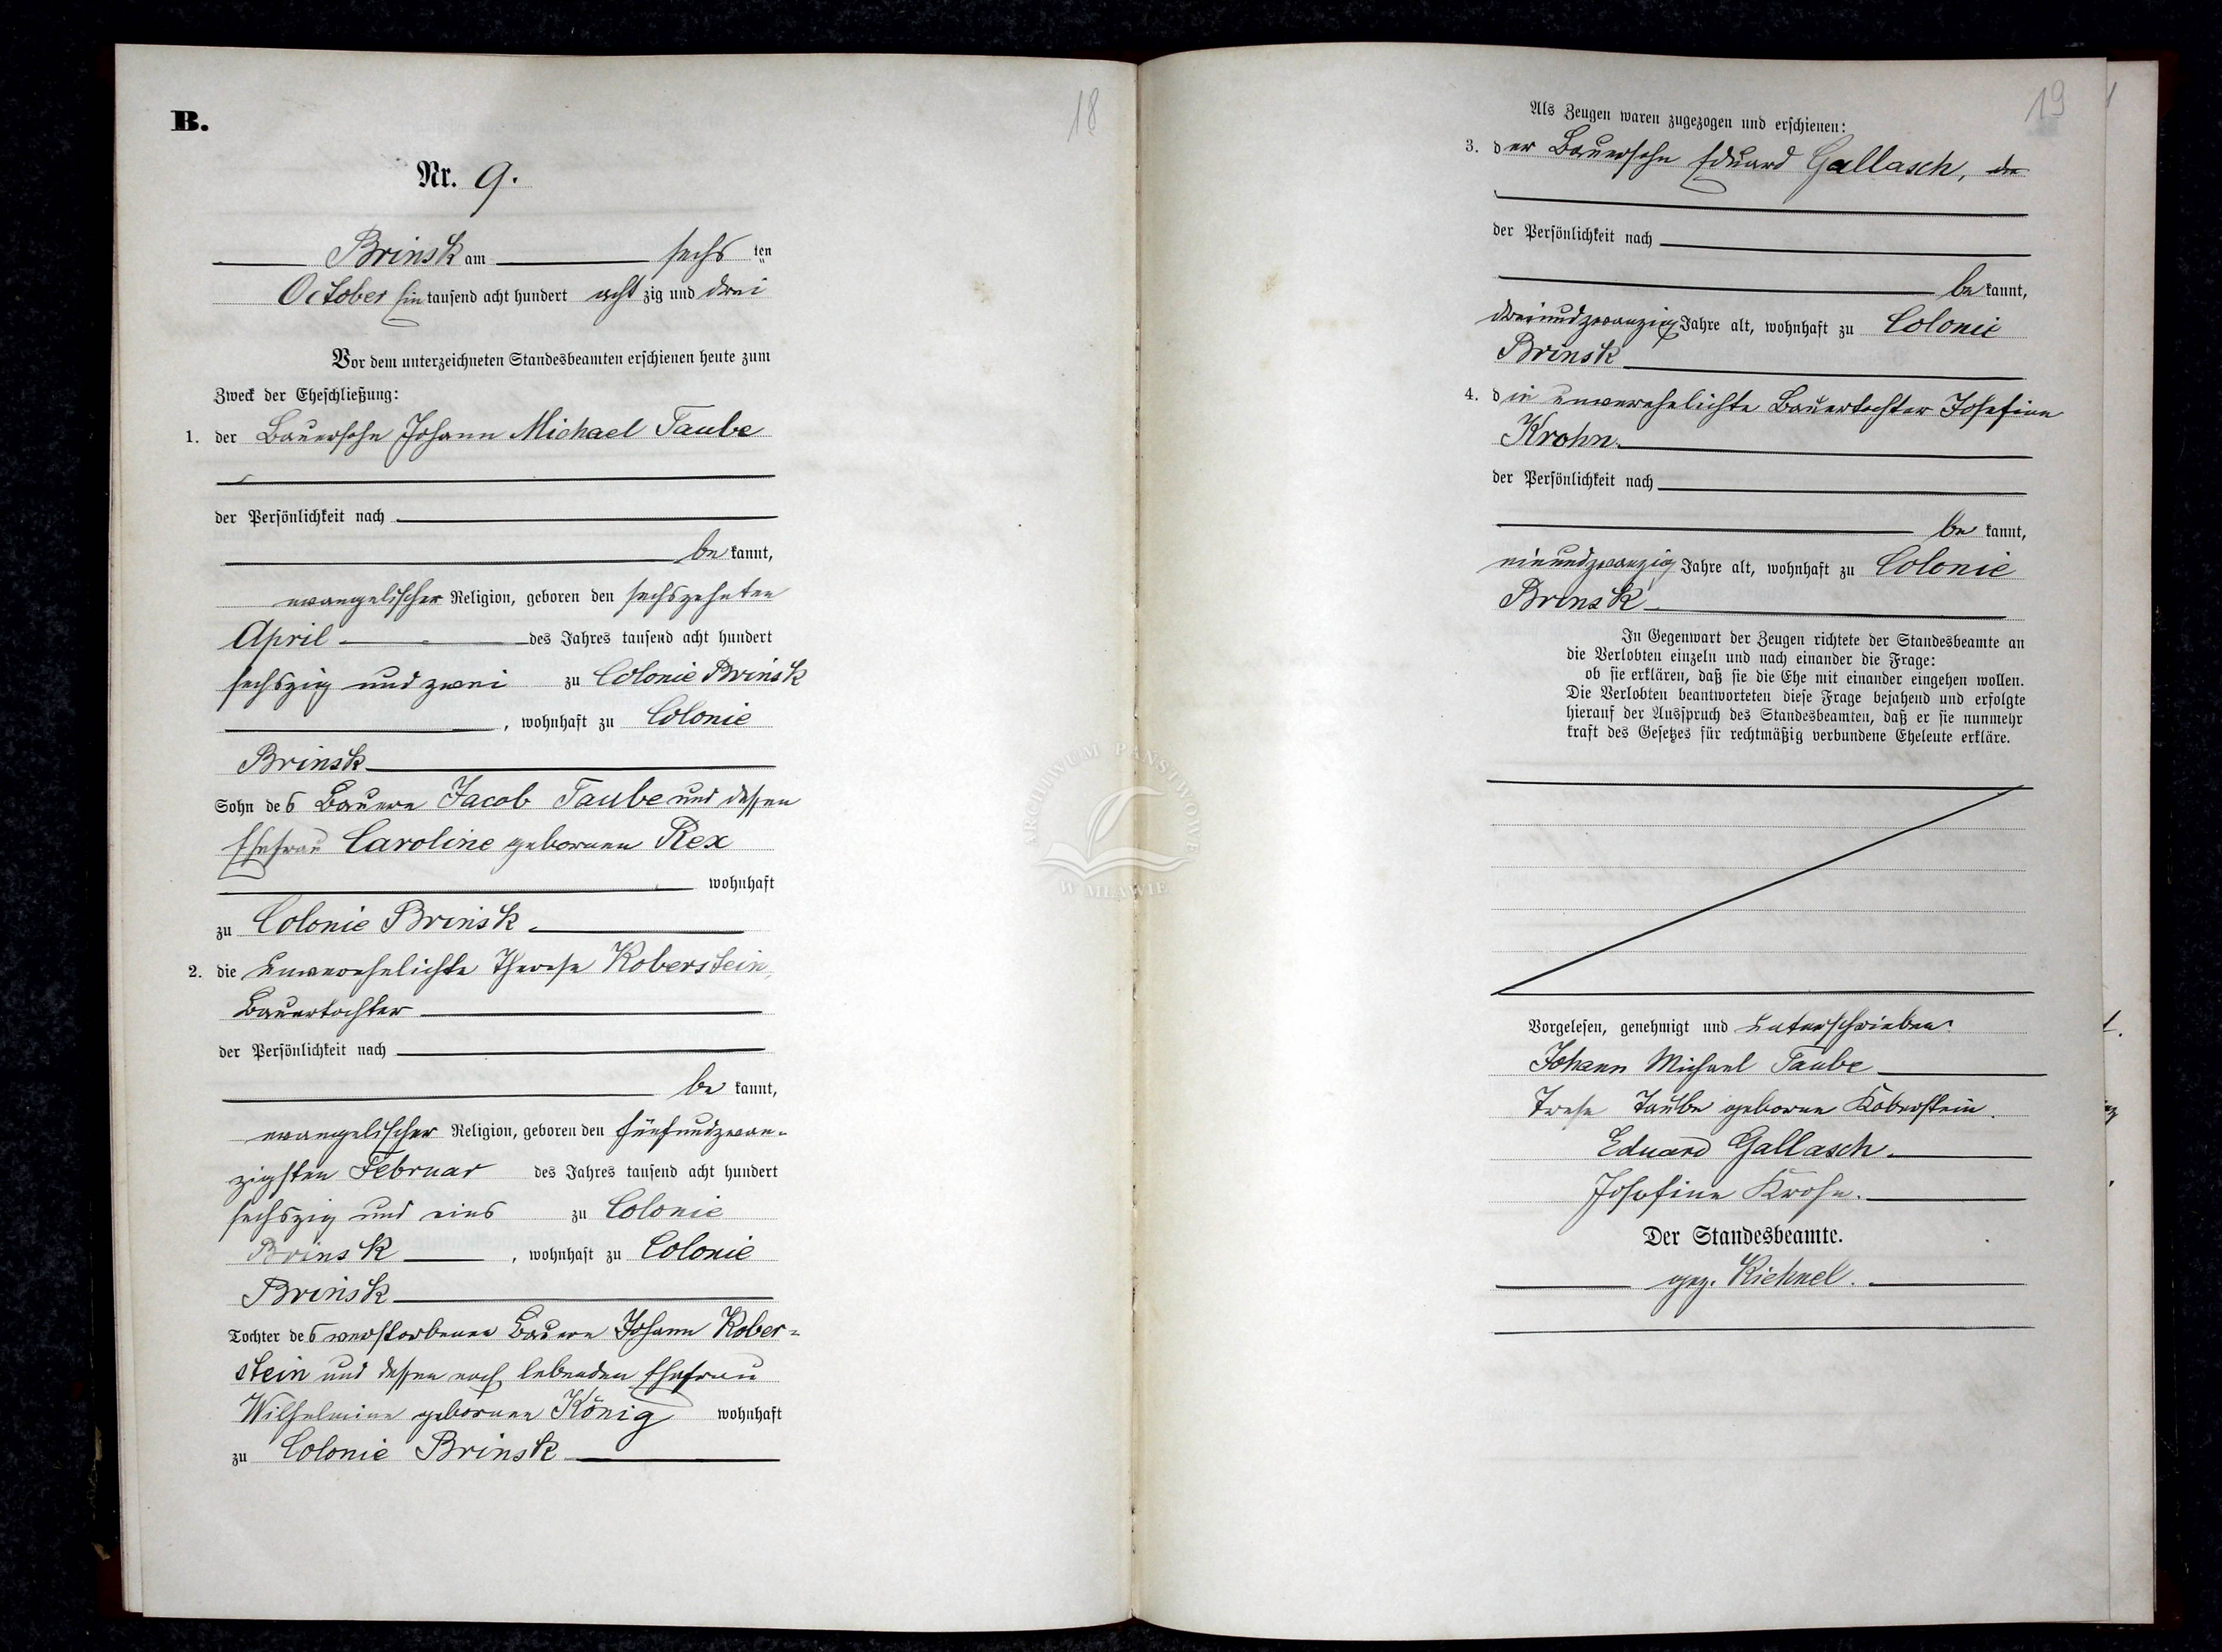 B.
18
Nr. 9.
Brinsk am sechs ten
October Ein tausend acht hundert acht zig und drei
Vor dem unterzeichneten Standesbeamten erschienen heute zum
Zweck der Eheschließung:
1. der Bauersohn Johann Michael Taube
der Persönlichkeit nach
be kannt,
evangelischer Religion, geboren den sechszehnten
April des Jahres tausend acht hundert
sechszig und zwei zu Colonie Brinsk
, wohnhaft zu Colonie
Brinsk
Sohn des Bauern Jacob Taube und dessen
Ehefrau Caroline gebornen Rex
wohnhaft
zu Colonie Brinsk
2. die unverehelichte Therese Koberstein,
Bauertochter
der Persönlichkeit nach
be kannt,
evangelischer Religion, geboren den fünfundzwan-
zigsten Februar des Jahres tausend acht hundert
sechszig und eins zu Colonie
Brinsk , wohnhaft zu Colonie
Brinsk
Tochter des verstorbenen Bauern Johann Kober-
stein und dessen noch lebenden Ehefrau
Wilhelmine gebornen König wohnhaft
zu Colonie Brinsk
19
Als Zeugen waren zugezogen und erschienen:
3. der Bauersohn Eduard Gallasch,
der Persönlichkeit nach
be kannt,
dreiundzwanzig Jahre alt, wohnhaft zu Colonie
Brinsk
4. die unverehelichte Bauertochter Josefine
Krohn
der Persönlichkeit nach
be kannt,
einundzwanzig Jahre alt, wohnhaft zu Colonie
Brinsk
In Gegenwart der Zeugen richtete der Standesbeamte an
die Verlobten einzeln und nach einander die Frage:
ob sie erklären, daß sie die Ehe mit einander eingehen wollen.
Die Verlobten beantworteten diese Frage bejahend und erfolgte
hierauf der Ausspruch des Standesbeamten, daß er sie nunmehr
kraft des Gesetzes für rechtmäßig verbundene Eheleute erkläre.
Vorgelesen, genehmigt und unterschrieben
Johann Michael Taube
Trese Taube geborne Koberstein.
Eduard Gallasch.
Josefine Krohn.
Der Standesbeamte.
gez. Kichnel.
ARCHIWUM PAŃSTWOWE
W MŁAWIE